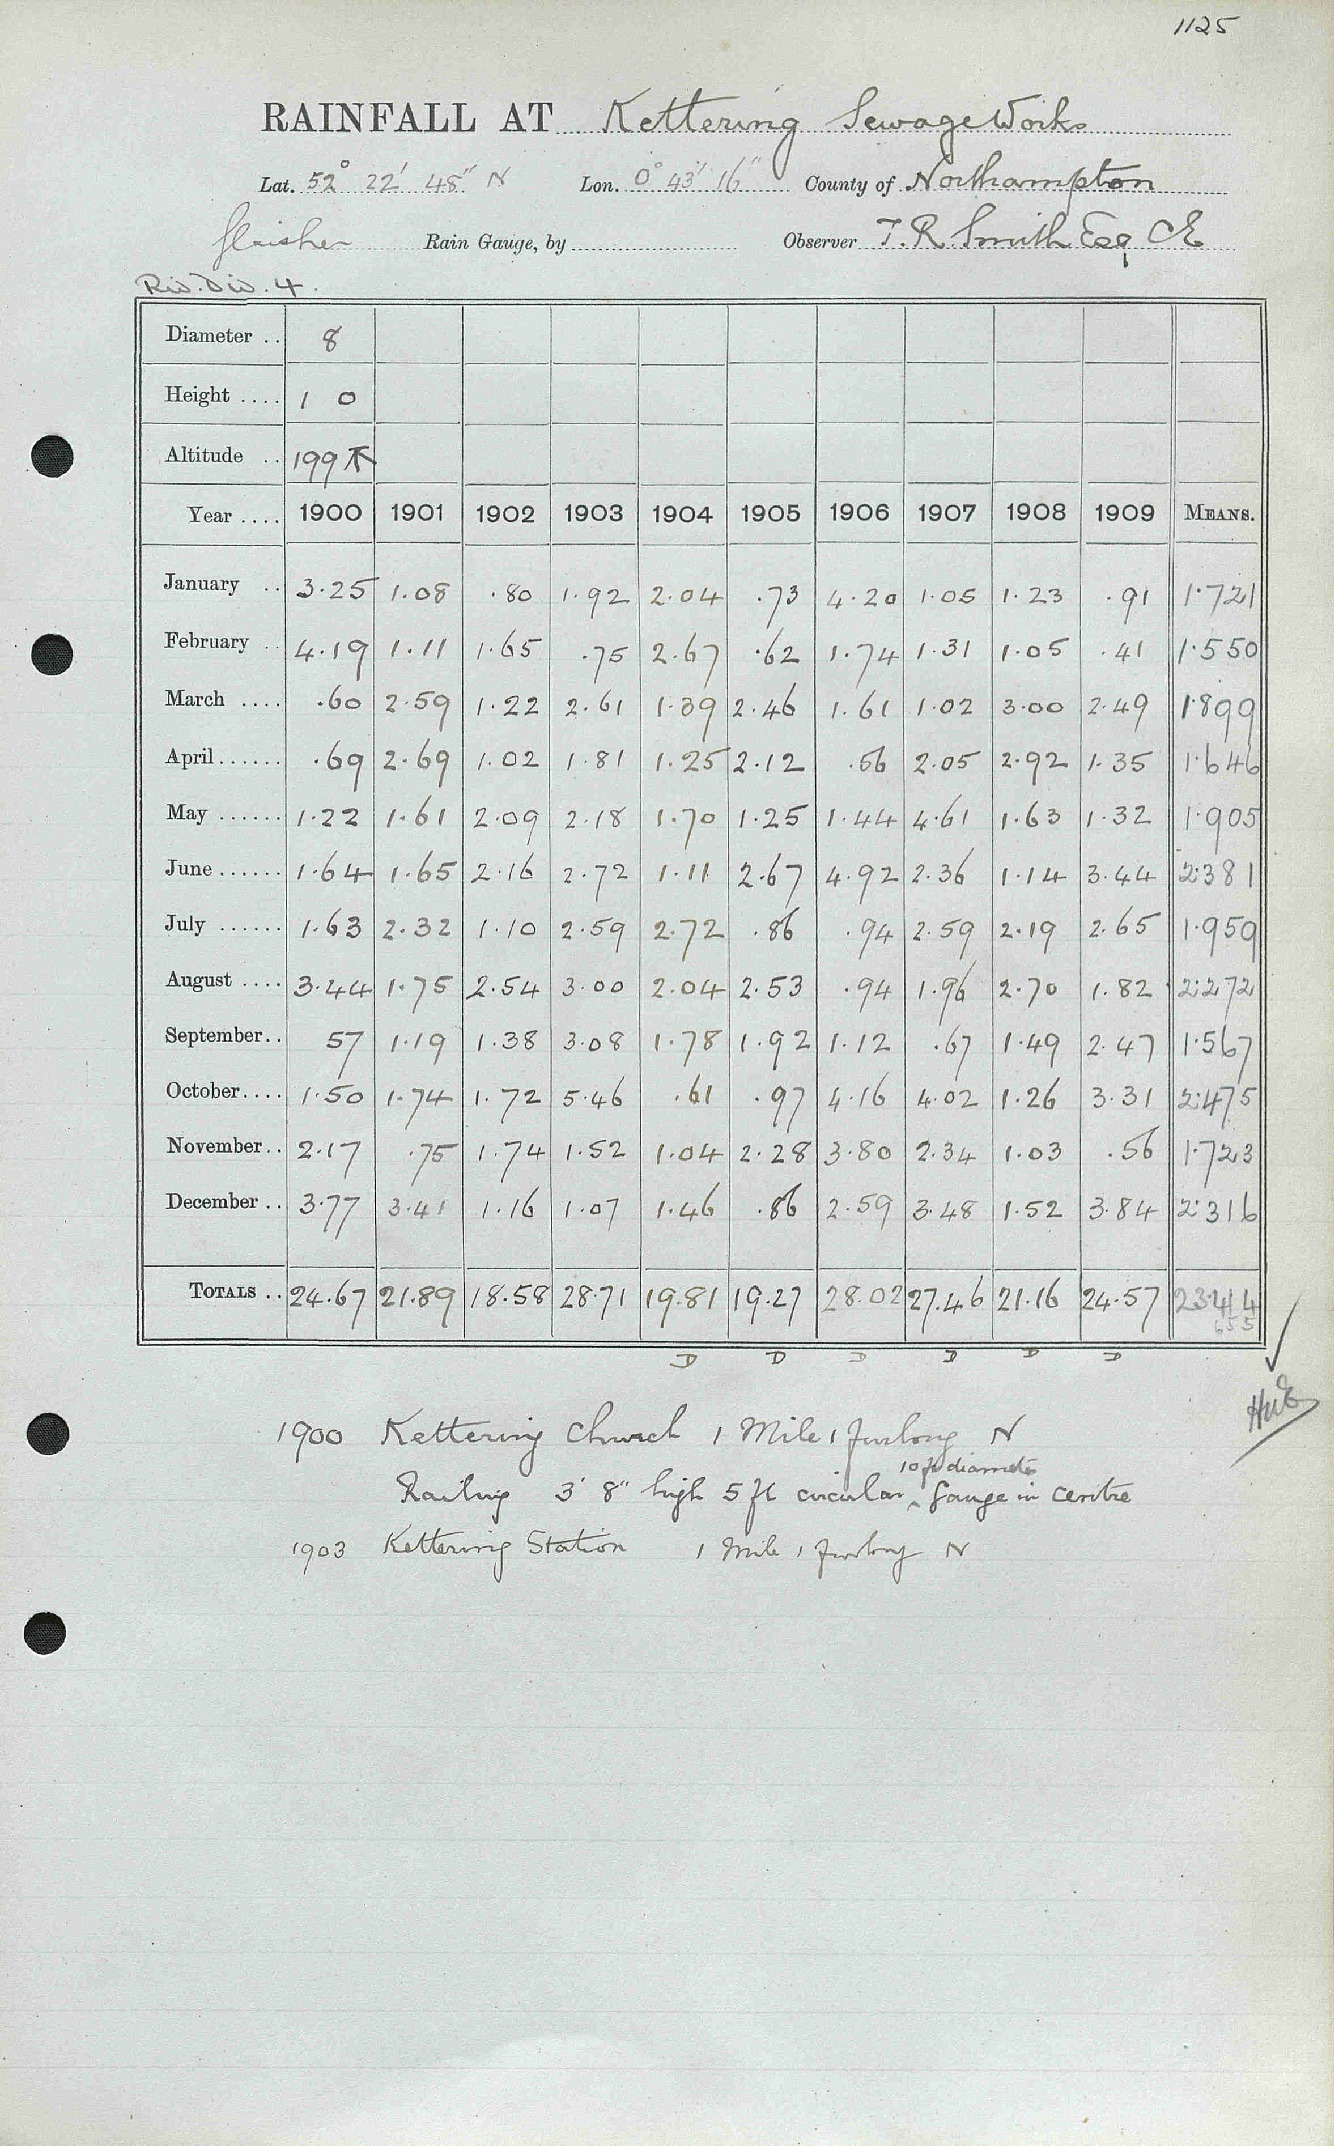 1125
RAINFALL AT Kettering Sewage Works
Lat. 52° 22' 48" N Lon. 0° 43' 16" County of Northampton
Glaisher Rain Gauge, by Observer T. R. Smith Esq CE
Riv. Div. 4.
Diameter .. 8
Height .... 1 0
Altitude .. 199
Year .... 1900 1901 1902 1903 1904 1905 1906 1907 1908 1909 MEANS.
January .. 3.25 1.08 .80 1.92 2.04 .73 4.20 1.05 1.23 .91 1.721
February .. 4.19 1.11 1.65 .75 2.67 .62 1.74 1.31 1.05 .41 1.550
March .... .60 2.59 1.22 2.61 1.39 2.46 1.61 1.02 3.00 2.49 1.899
April ...... .69 2.69 1.02 1.81 1.25 2.12 .56 2.05 2.92 1.35 1.646
May ...... 1.22 1.61 2.09 2.18 1.70 1.25 1.44 4.61 1.63 1.32 1.905
June ...... 1.64 1.65 2.16 2.72 1.11 2.67 4.92 2.36 1.14 3.44 2.381
July ...... 1.63 2.32 1.10 2.59 2.72 .86 .94 2.59 2.19 2.65 1.959
August .... 3.44 1.75 2.54 3.00 2.04 2.53 .94 1.96 2.70 1.82 2.272
September .. 57 1.19 1.38 3.08 1.78 1.92 1.12 .67 1.49 2.47 1.567
October .... 1.50 1.74 1.72 5.46 .61 .97 4.16 4.02 1.26 3.31 2.475
November .. 2.17 .75 1.74 1.52 1.04 2.28 3.80 2.34 1.03 .56 1.723
December .. 3.77 3.41 1.16 1.07 1.46 .86 2.59 3.48 1.52 3.84 2.316
TOTALS .. 24.67 21.89 18.58 28.71 19.81 19.27 28.02 27.46 21.16 24.57 23.414
655
D D D D D D
1900 Kettering Church 1 Mile 1 furlong N
10 ft diameter
Railing 3' 8" high 5 ft circular ^ Gauge in centre
1903 Kettering Station 1 Mile 1 furlong N